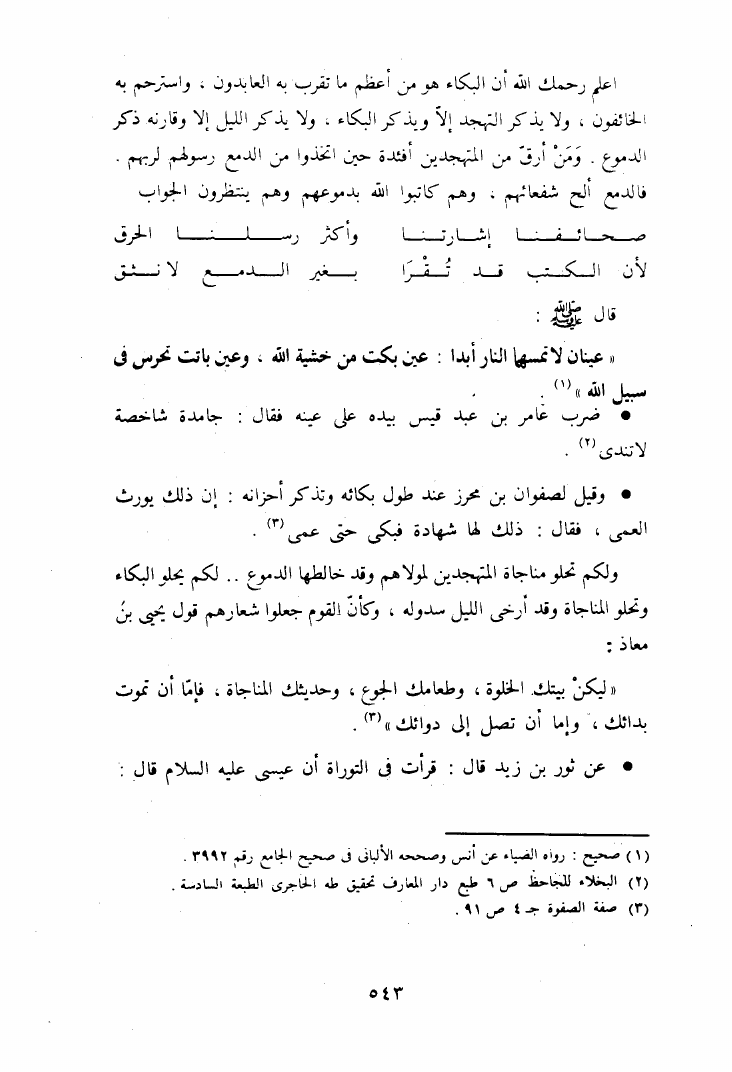 اعلم رحمك الله أن البكاء هو من أعظم ما تقرب به العابدون ، واسترحم به
الخائفون ، ولا يذكر التهجد إلاّ ويذكر البكاء ، ولا يذكر الليل إلا وقارنه ذكر
الدموع . وَمَنْ أرقّ من المتهجدين أفئدة حين اتخذوا من الدمع رسولهم لربهم .
فالدمع ألح شفعائهم ، وهم كاتبوا الله بدموعهم وهم ينتظرون الجواب
صحائفنا إشارتنا وأكثر رسلنا الحرق
لأن الكتب قد تُقْرَا بغير الدمع لا نثق
قال ﷺ :
« عينان لا تمسها النار أبدا : عين بكت من خشية الله ، وعين باتت تحرس فى
سبيل الله »(١) .
● ضرب عامر بن عبد قيس بيده على عينه فقال : جامدة شاخصة
لاتندى(٢) .
● وقيل لصفوان بن محرز عند طول بكائه وتذكر أحزانه : إن ذلك يورث
العمى ، فقال : ذلك لها شهادة فبكى حتى عمى(٣) .
ولكم تحلو مناجاة المتهجدين لمولاهم وقد خالطها الدموع .. لكم يحلو البكاء
وتحلو المناجاة وقد أرخى الليل سدوله ، وكأنّ القوم جعلوا شعارهم قول يحيى بنُ
معاذ :
« ليكنْ بيتك الخلوة ، وطعامك الجوع ، وحديثك المناجاة ، فإمّا أن تموت
بدائك ، وإما أن تصل إلى دوائك »(٣) .
● عن ثور بن زيد قال : قرأت فى التوراة أن عيسى عليه السلام قال :
(١) صحيح : رواه الضياء عن أنس وصححه الألبانى فى صحيح الجامع رقم ٣٩٩٢ .
(٢) البخلاء للجاحظ ص ٦ طبع دار المعارف تحقيق طه الحاجرى الطبعة السادسة .
(٣) صفة الصفوة جـ ٤ ص ٩١ .
٥٤٣